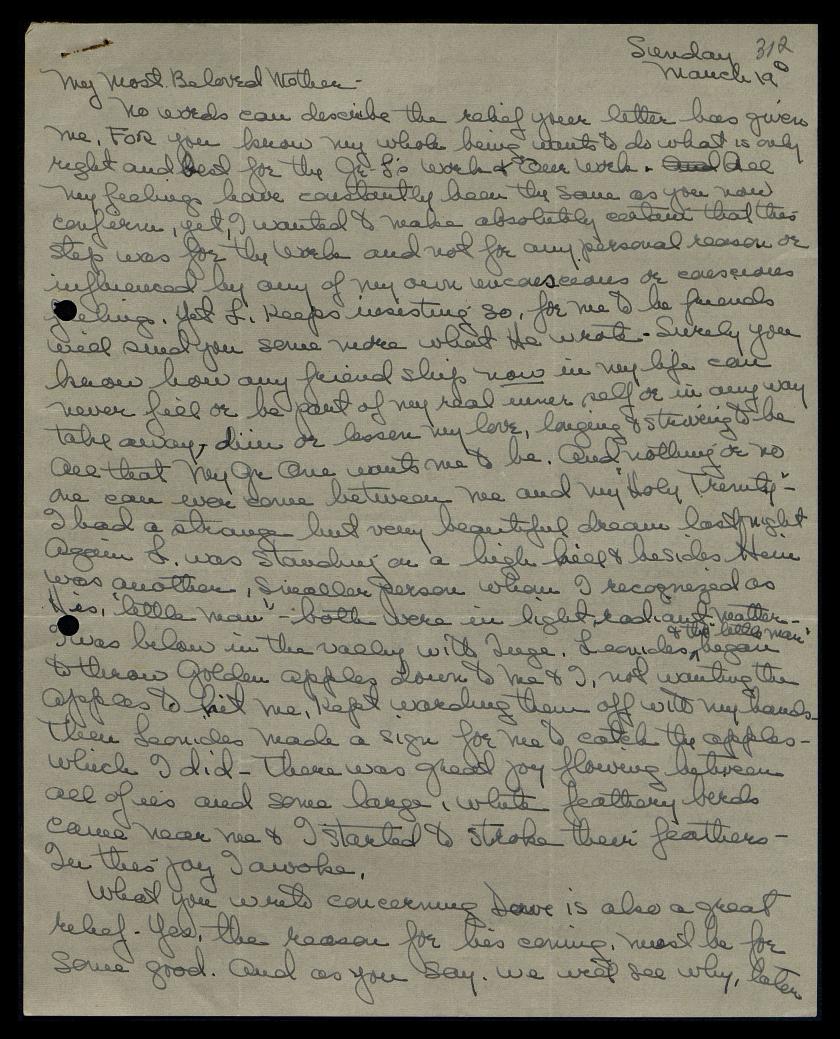 Sunday 312
March 19
My Most Beloved Mother-
No words can describe the relief your letter has given
me. For you know my whole being wants to do what is only
right and best for the Gr-L's work & Our Work. And All
my feelings have constantly been the same as you now
confirm, yet, I wanted to make absolutely certain that this
step was for the Work and not for any personal reason or
influenced by any of my own unconscious or conscious
feelings. Yet L. keeps insisting so, for me to be friends
will send you some more what He wrote - Surely you
know how any friendship now in my life can
never feel or be part of my real inner self or in any way
take away, dim or lessen my love, longing & striving to be
all that My Gr One wants me to be. And nothing or no
one can ever come between me and my "Holy Trinity" -
I had a strange but very beautiful dream last night
Again L. was standing on a high hill & besides Him
was another, smaller person whom I recognized as
His, "little man" - both were in light, radiant matter -
I was below in the valley with Inge. Leonides, & the "little man" began
to throw Golden apples down to me & I, not wanting the
apples to hit me, kept warding them off with my hands -
Then Leonides made a sign for me to catch the apples -
which I did - There was great joy flowing between
all of us and some large, white feathery birds
came near me & I started to stroke their feathers -
In this joy I awoke.
What you wrote concerning Dave is also a great
relief. Yes, the reason for his coming, must be for
some good. And as you say. we will see why, later